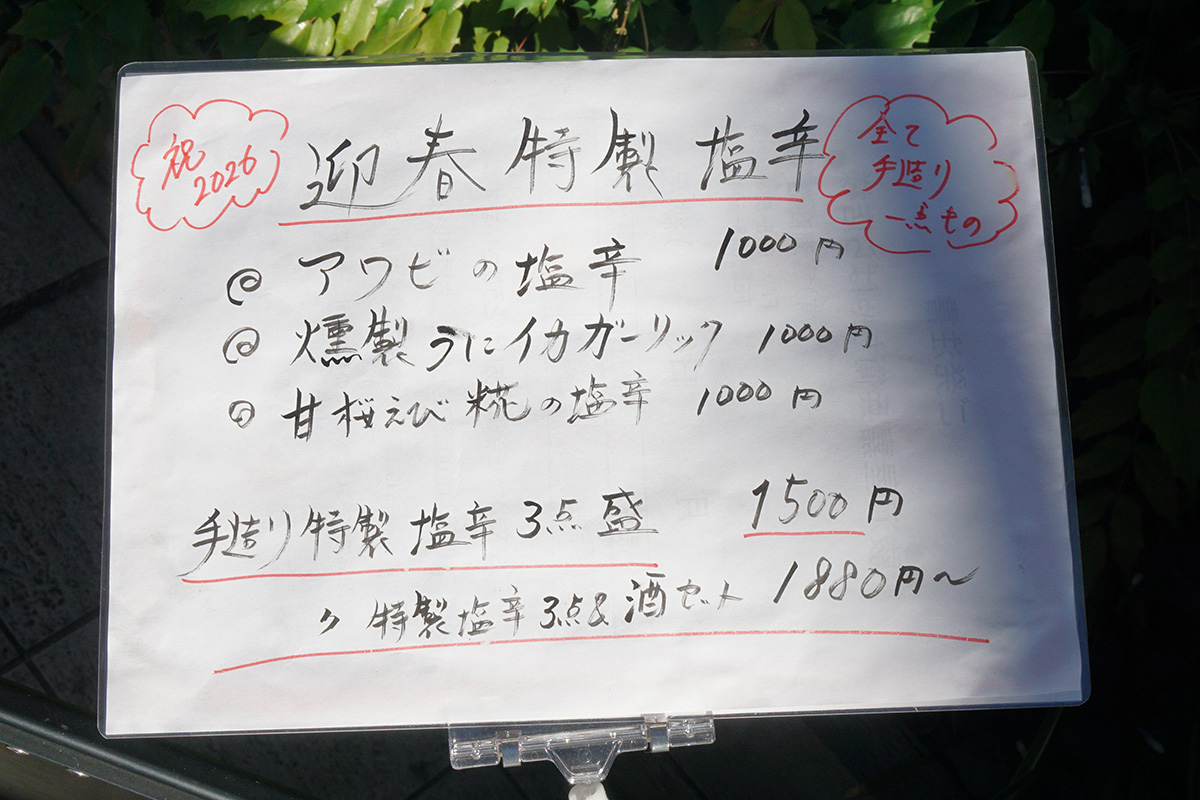 祝
2026
迎春特製塩辛
全て
手造り
一点もの
アワビの塩辛 1000円
燻製うにイカガーリック 1000円
甘桜えび糀の塩辛 1000円
手造り特製塩辛3点盛 1500円
〃 特製塩辛3点&酒セット 1880円〜